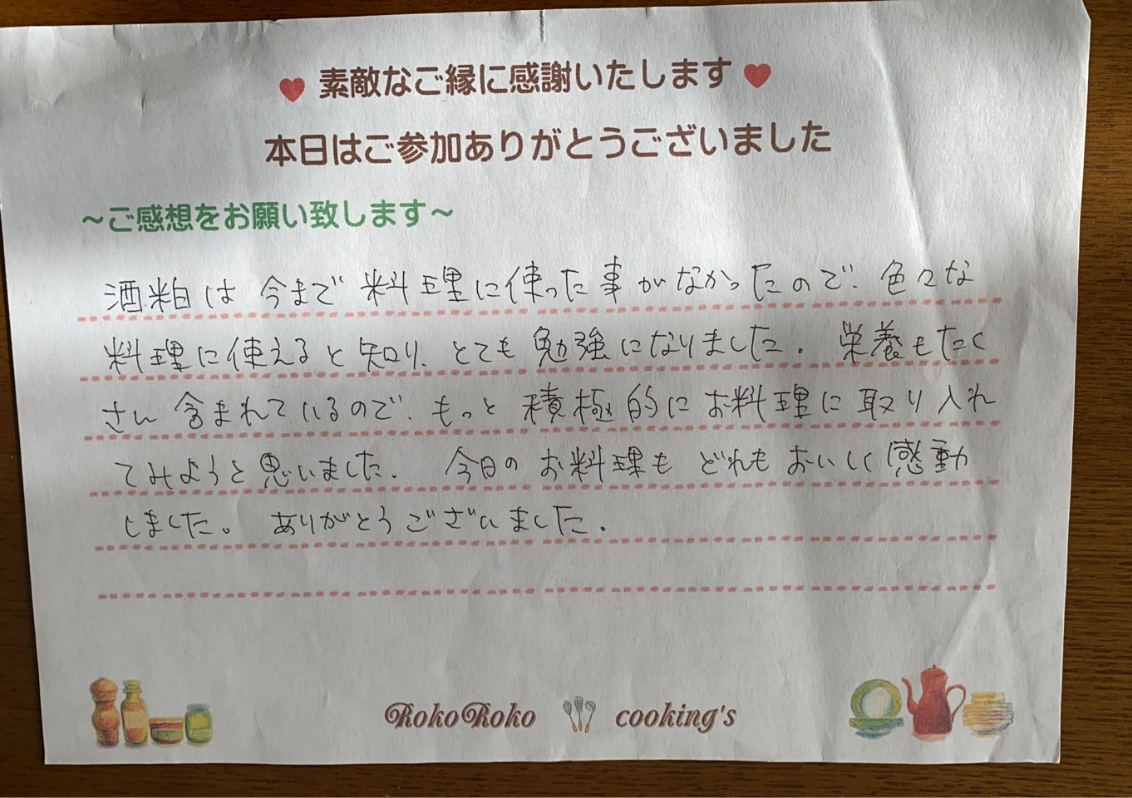 ♥ 素敵なご縁に感謝いたします ♥
本日はご参加ありがとうございました
～ご感想をお願い致します～
酒粕は今まで料理に使った事がなかったので、色々な
料理に使えると知り、とても勉強になりました。栄養もたく
さん含まれているので、もっと積極的にお料理に取り入れ
てみようと思いました。今日のお料理もどれもおいしく感動
しました。ありがとうございました。
RokoRoko cooking's